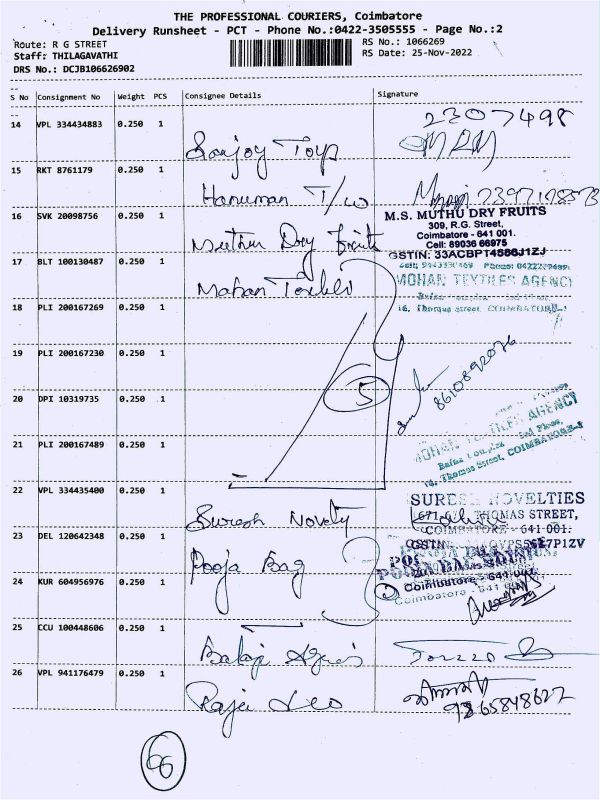 THE PROFESSIONAL COURIERS, Coimbatore
Delivery Runsheet - PCT - Phone No.:0422-3505555 - Page No.:2
Route: R G STREET
Staff: THILAGAVATHI
DRS No.: DCJB106626902
RS No.: 1066269
RS Date: 25-Nov-2022
S No Consignment No Weight PCS Consignee Details Signature
14 VPL 334434883 0.250 1 Sanjoy Toys 23307498
15 RKT 8761179 0.250 1 Hanuman T/w
16 SVK 20098756 0.250 1 Muthu Dry fruits
M.S. MUTHU DRY FRUITS
309, R.G. Street,
Coimbatore - 641 001.
Cell: 89036 66975
GSTIN: 33ACBPT4586J1ZJ
17 BLT 100130487 0.250 1 Mohan
MOHAN TEXTILES AGENCY
16, Thomas Street, COIMBATORE-1
18 PLI 200167269 0.250 1
19 PLI 200167230 0.250 1
20 DPI 10319735 0.250 1 5 8610892076
21 PLI 200167489 0.250 1
MOHAN TEXTILES AGENCY
16, Thomas Street, COIMBATORE-1
22 VPL 334435400 0.250 1 Suresh Novelty
SURESH NOVELTIES
THOMAS STREET,
COIMBATORE - 641 001.
23 DEL 120642348 0.250 1 Pooja Bag
24 KUR 604956976 0.250 1
Coimbatore - 641 001
25 CCU 100448606 0.250 1 Balaji
26 VPL 941176479 0.250 1 Raja
9865848622
66